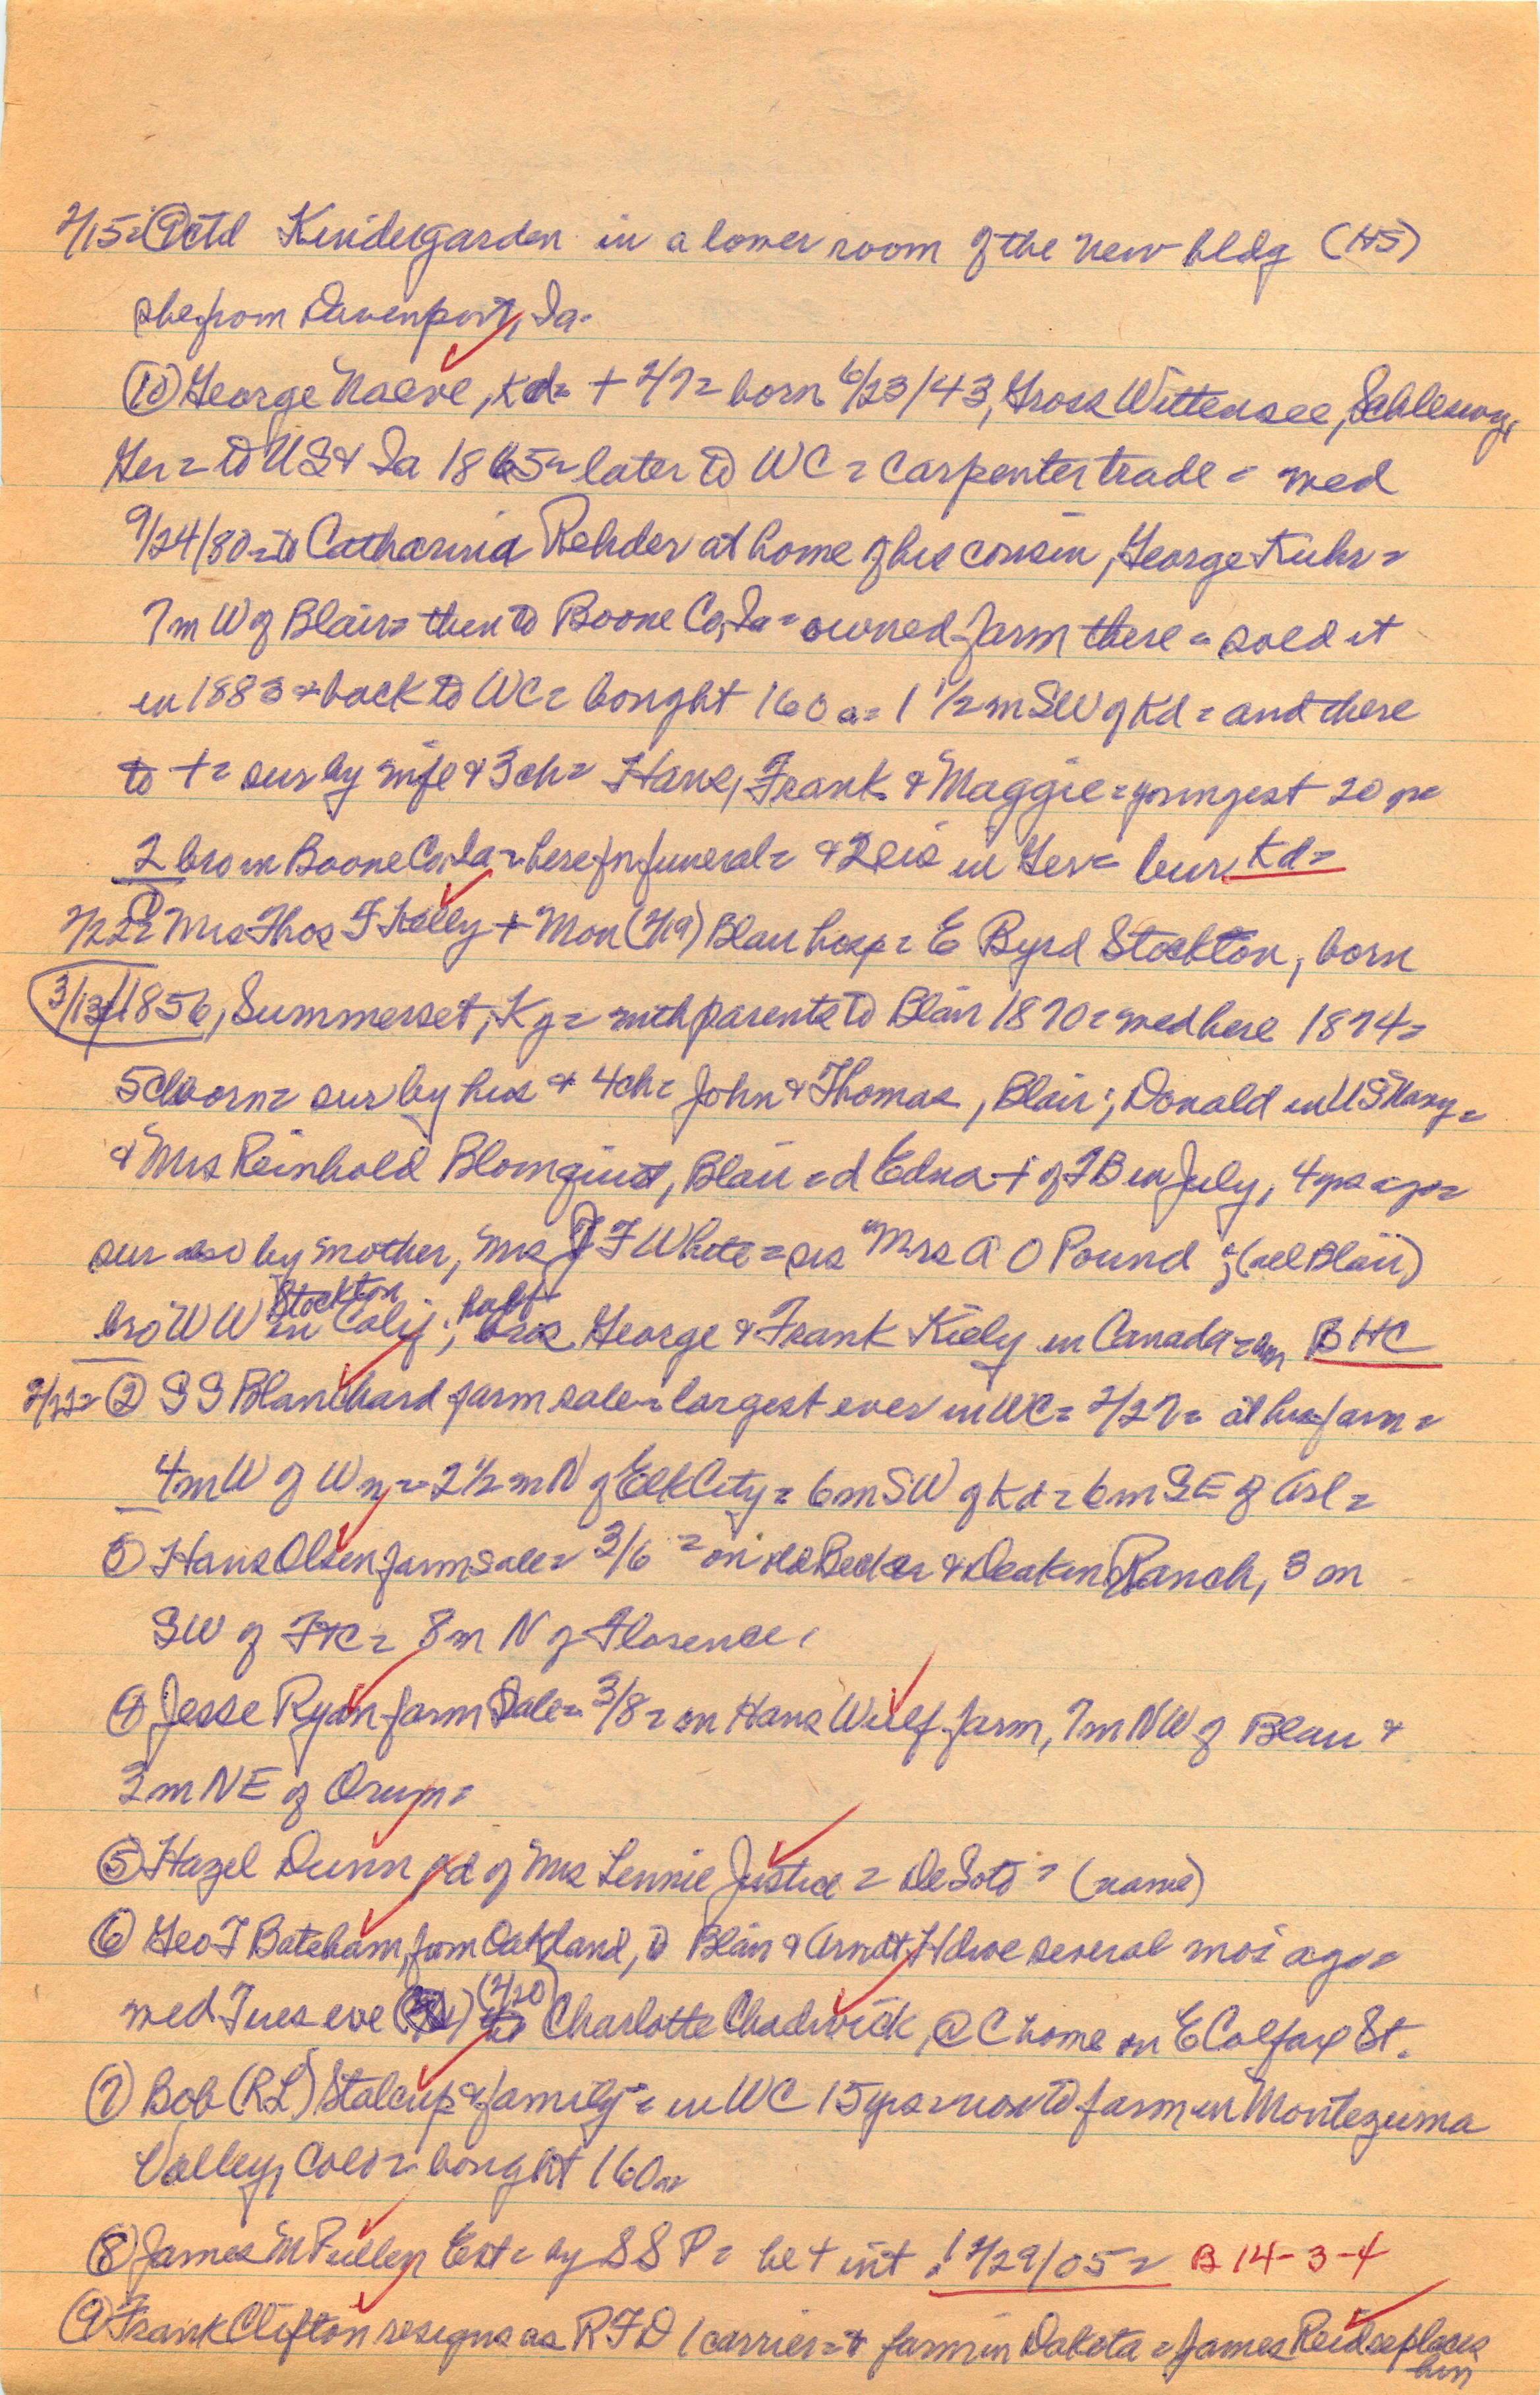 2/15= (9ctd Kindergarden in a lower room of the new bldg (HS)
she from Davenport, Ia.
(10) George Naeve, Kd= + 2/7= born 6/23/43, Gross Wittensee, Schleswig,
Ger= to US & Ia 1865= later to WC= carpenter trade= med
9/24/80= to Catharina Rehder at home of his cousin, George Kuhr=
7m W of Blair= then to Boone Co, Ia= owned farm there= sold it
in 1883 & back to WC= bought 160a= 1 1/2 m SW of Kd= and there
to += sur by wife & 3ch= Hans, Frank & Maggie= youngest 20
2 bro in Boone Co, Ia= here for funeral= & 2 sis in Ger= bur Kd=
2/22= (1) Mrs Thos F Kelly + Mon (2/19) Blair hosp= E Byrd Stockton, born
3/13/1856, Summerset, Ky= with parents to Blair 1870= med here 1874=
5 ch born= sur by hus & 4ch= John & Thomas, Blair; Donald in US Navy=
& Mrs Reinhold Blomquist, Blair= d Edna + of TB in July, 4 yrs ago=
sur also by mother, Mrs J F White= sis Mrs A O Pound; (all Blair)
bro W W Stockton in Calif; half bros George & Frank Kiely in Canada= bur BHC
2/22= (2) S S Blanchard farm sale= largest ever in WC= 2/27= at his farm=
4m W of Wn= 2 1/2 m N of Elk City= 6m SW of Kd= 6m SE of Arl=
(3) Hans Olsen farm sale= 3/6= on old Becker & Deaken Ranch, 3 m
SW of FtC= 8m N of Florence,
(4) Jesse Ryan farm sale= 3/8= on Hans Wulf farm, 7m NW of Blair &
3m NE of Orum=
(5) Hazel Dunn, d of Mrs Lennie Justice= DeSoto= (name)
(6) Geo T Bateham, from Oakland, to Blair & Arndt Hdwe several mos ago=
med Tues eve (2/20) to Charlotte Chadwick, @ C home on E Colfax St.
(7) Bob (RL) Stalcup & family= in WC 15 yrs= now to farm in Montezuma
Valley, Colo= bought 160a=
(8) James M Pullen Est= by S S P= he + int.! 2/29/05= B 14-3-4
(9) Frank Clifton resigns as RFD 1 carrier= to farm in Dakota= James Reid replaces
him